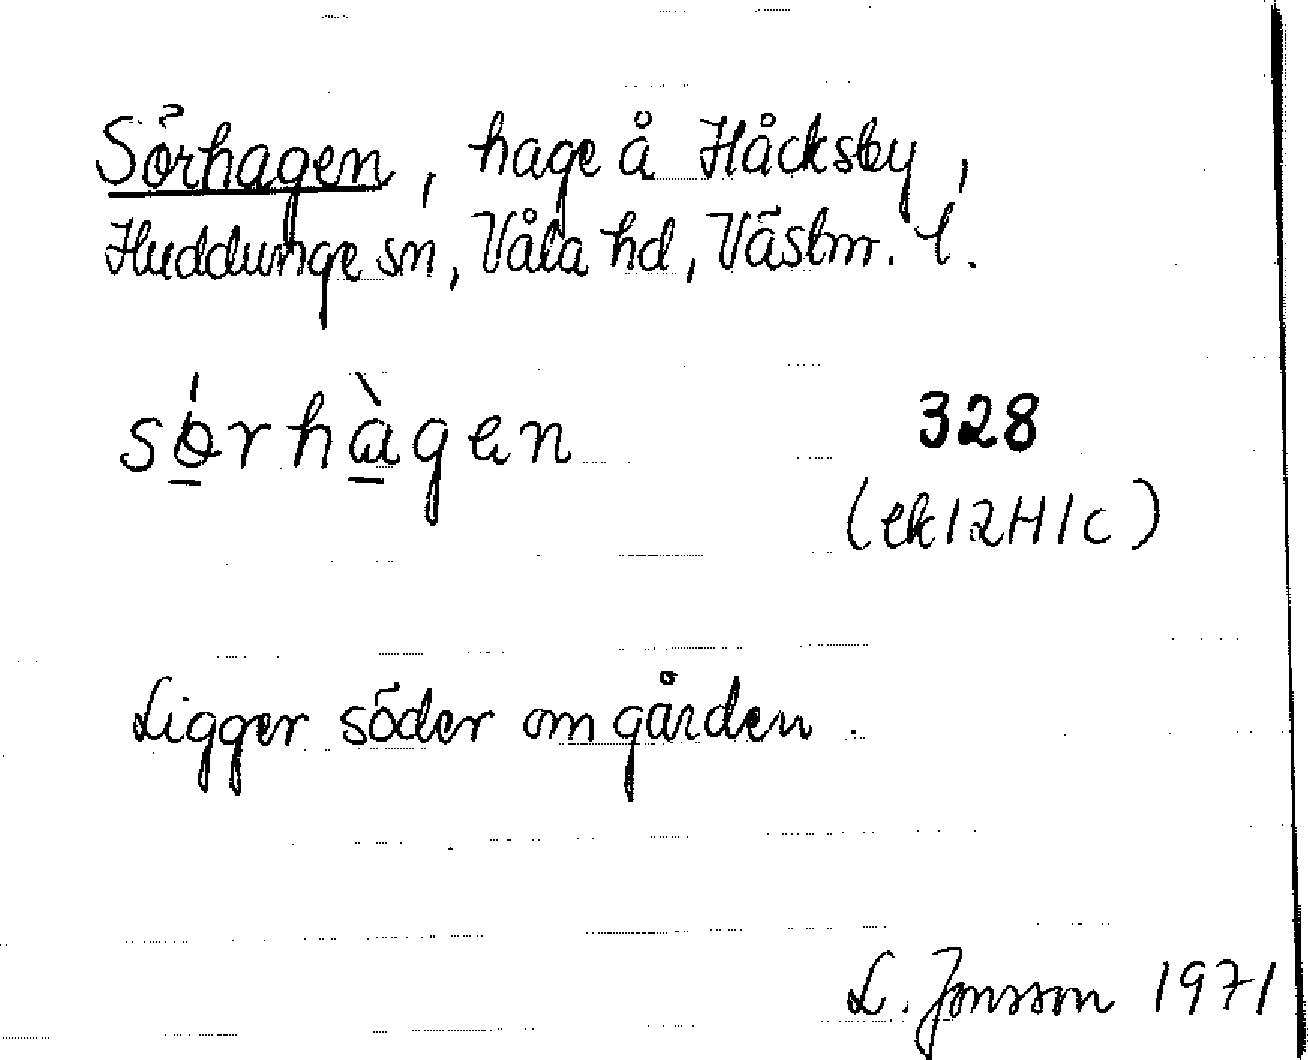 Sörhagen, hage å Håcksby,
Huddunge sn, Våla hd, Västm. l.
sö́rhàgen
328
(ek 12H1c)
Ligger söder om gården.
L. Jonsson 1971